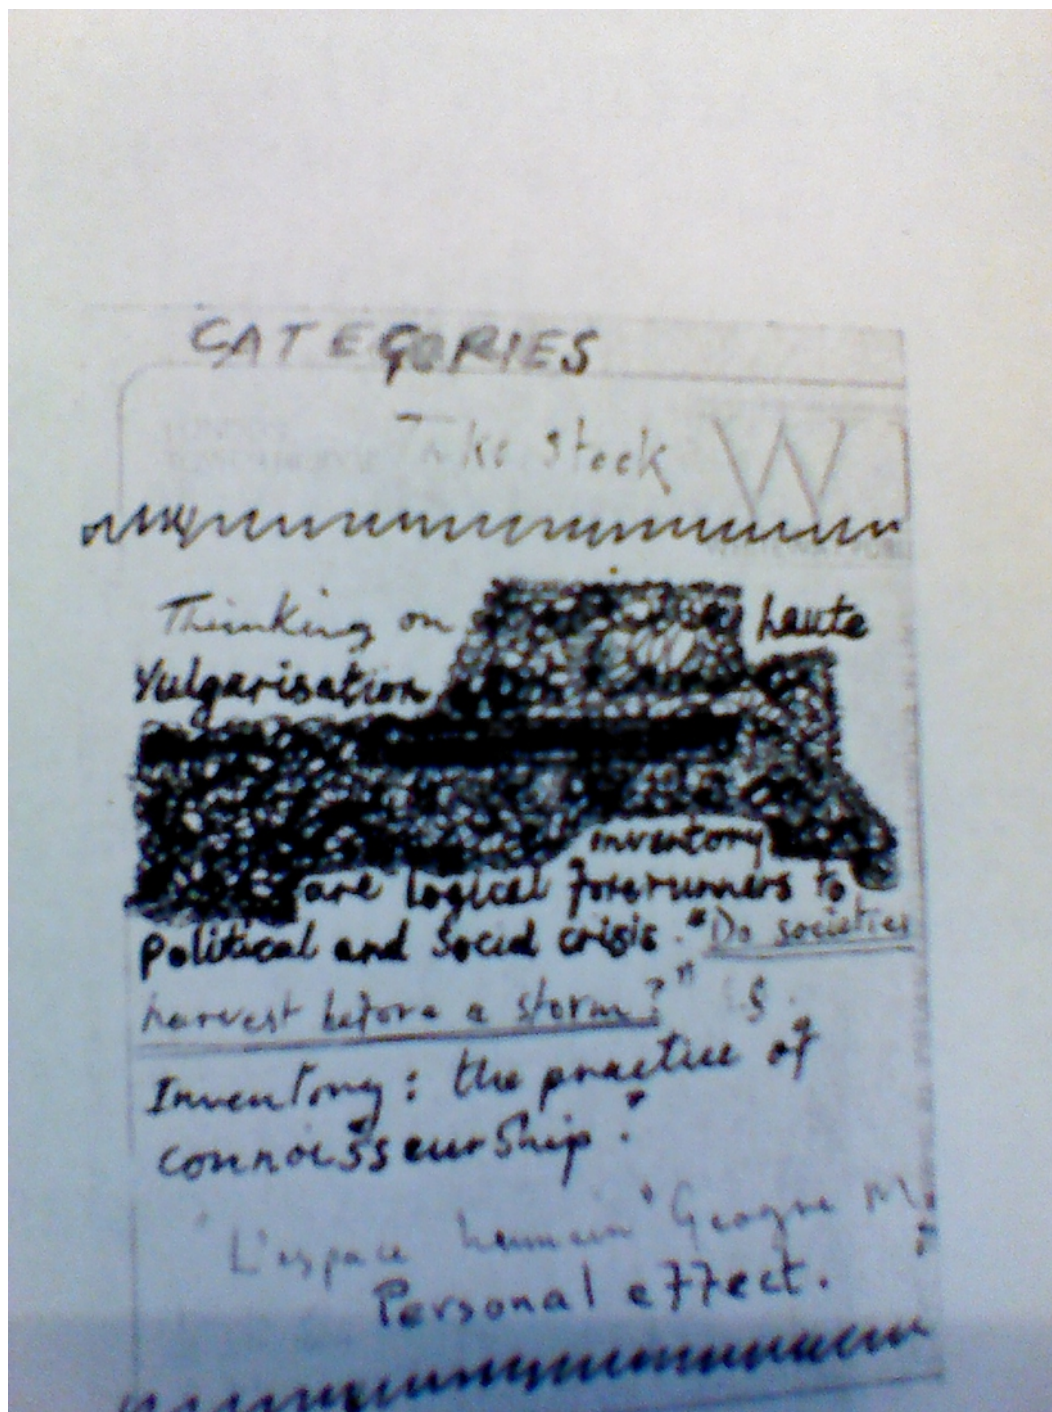 CATEGORIES
Take Stock
W
Thinking on haute
Vulgarisation
inventory
are logical forerunners to
political and Social crisis. "Do societies
harvest before a storm?"
Inventory: the practice of
connoisseurship.
"L'espace humain" George
Personal effect.